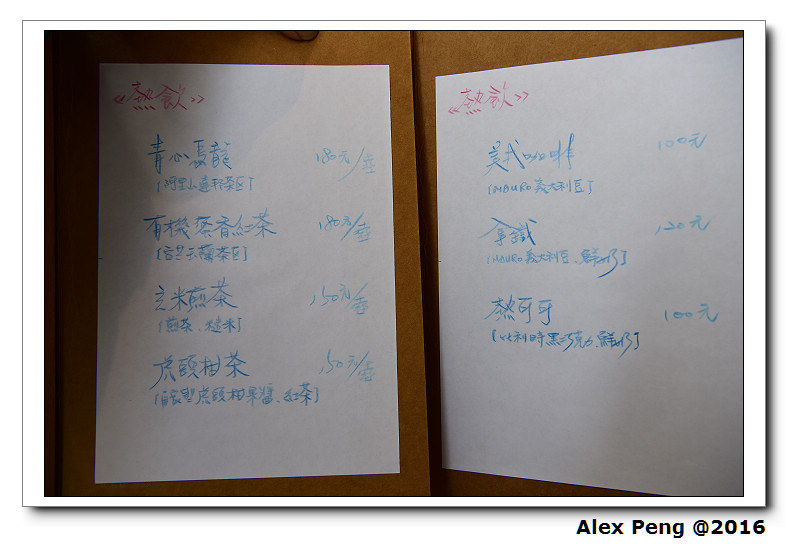 《熱飲》
青心烏龍 180元/壺
有機蜜香紅茶 180元/壺
玄米煎茶 150元/壺
[煎茶、糙米]
虎頭柑茶 150元/壺
[自家製虎頭柑果醬、紅茶]
《熱飲》
美式咖啡 100元
[MAURO義大利豆]
拿鐵 120元
[MAURO義大利豆、鮮奶]
熱可可 100元
[比利時黑巧克力、鮮奶]
Alex Peng @2016